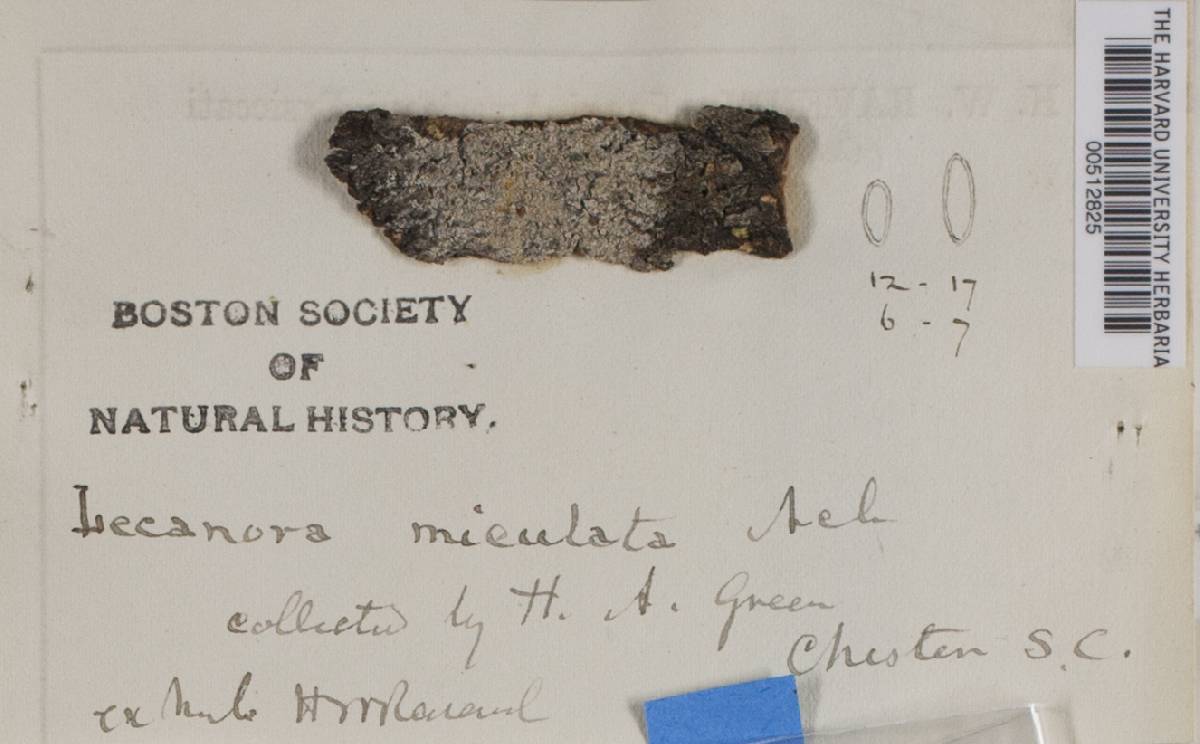 THE HARVARD UNIVERSITY HERBARIA
00512825
12 - 17
6 - 7
BOSTON SOCIETY
OF
NATURAL HISTORY.
Lecanora miculata Ach
collected by H. A. Green
Chester S.C.
ex